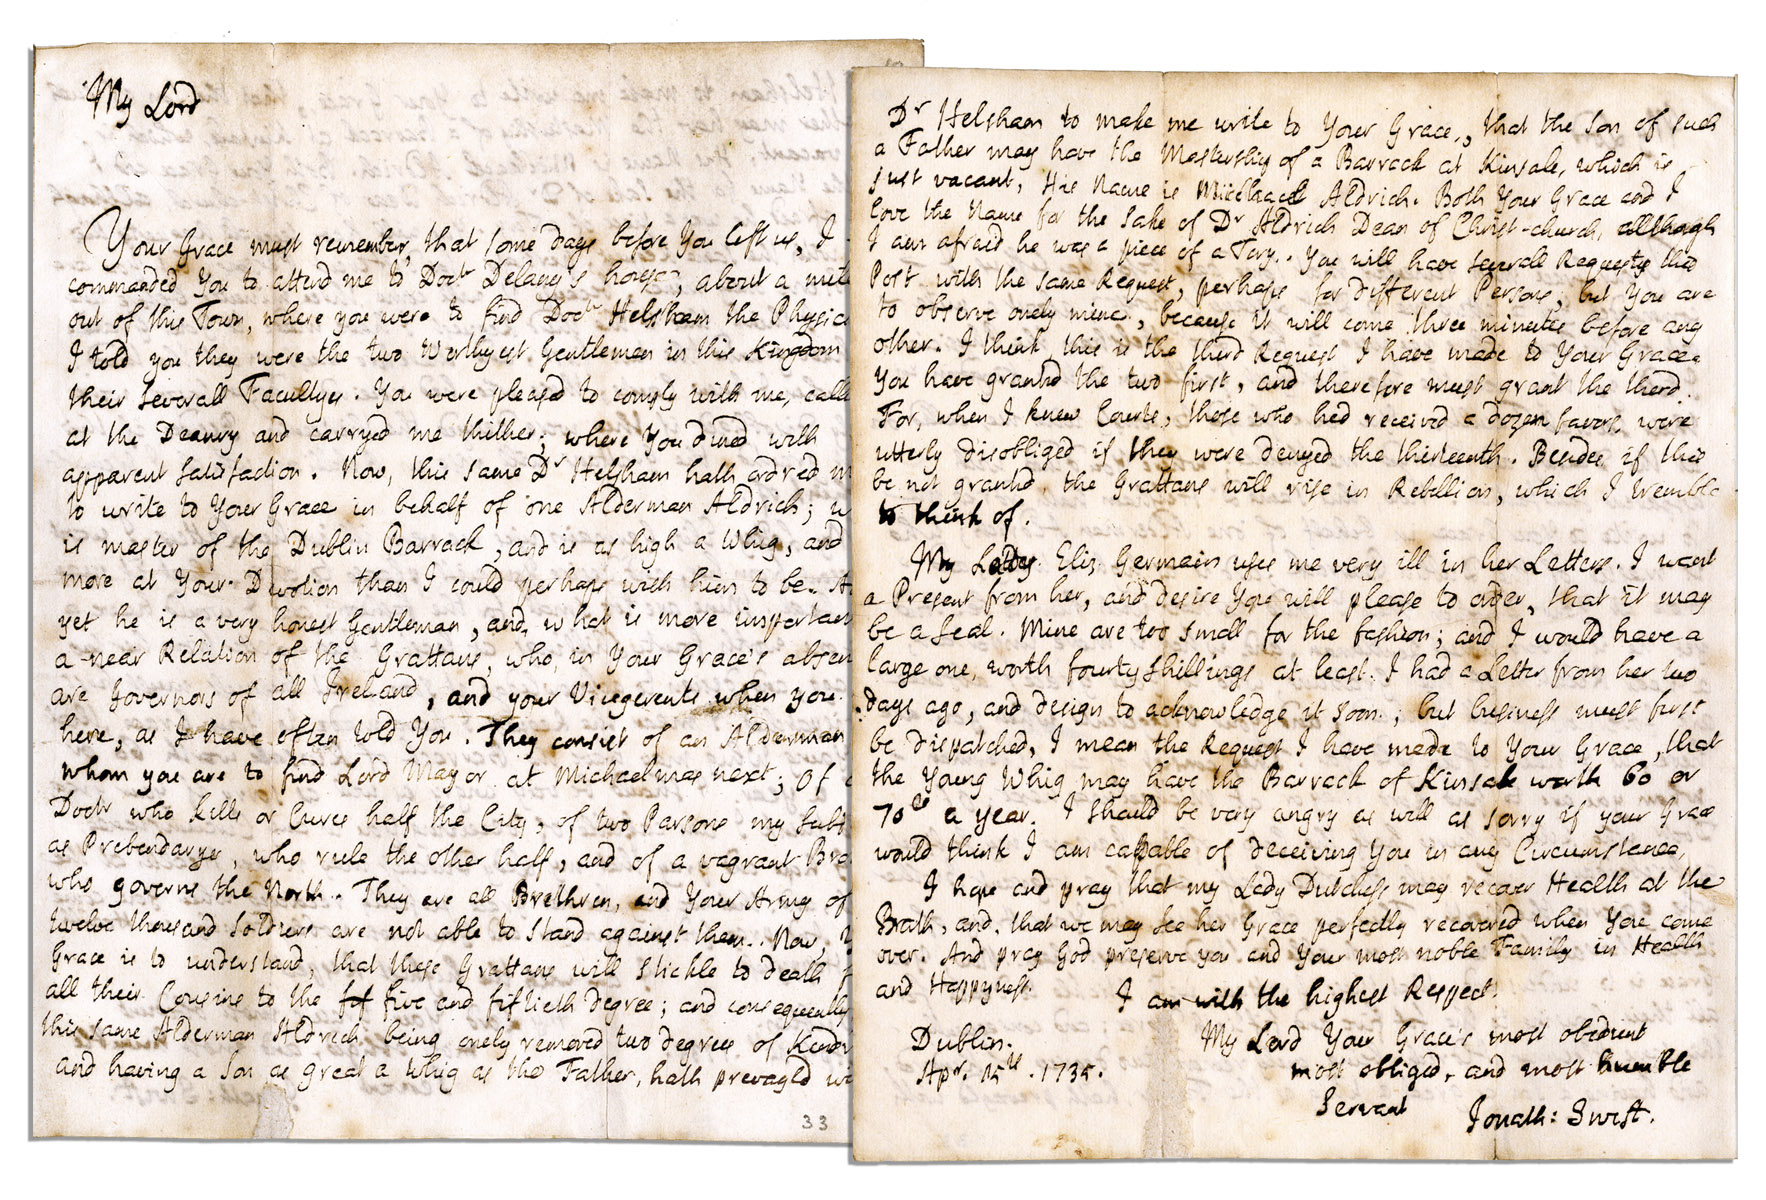 My Lord
Your Grace must remember, that some days before You left us, I
commanded You to attend me to Doctr Delany's house, about a mile
out of this Town, where you were to find Doctr Helsham the Physic
I told you they were the two Worthyest Gentlemen in this Kingdom
their severall Facultyes. You were pleased to comply with me, calle
at the Deanry and carryed me thither; where You dined with
apparent Satisfaction. Now, this same Dr Helsham hath ordred m
to write to Your Grace in behalf of one Alderman Aldrich; w
is master of the Dublin Barrack, and is as high a Whig, and
more at Your Devotion than I could perhaps wish him to be. A
yet he is a very honest Gentleman, and, what is more important
a near Relation of the Grattans, who, in Your Grace's absen
are Governors of all Ireland, and your Vicegerents when you
here, as I have often told You. They consist of an Alderman
whom you are to find Lord Mayor at Michaelmas next; Of a
Doctr who kills or Cures half the City, of two Parsons my Subj
as Prebendaryes, who rule the other half, and of a vagrant Bro
who governs the North. They are all Brethren, and Your Army of
twelve thousand Soldiers are not able to stand against them. Now, Y
Grace is to understand, that these Grattans will stickle to death f
all their Cousins to the fof five and fiftieth degree; and consequently
this same Alderman Aldrich being onely removed two degrees of Kindr
and having a Son as great a Whig as the Father, hath prevayled wi
33
Dr Helsham to make me write to Your Grace, that the Son of such
a Father may have the Mastership of a Barrack at Kinsale, which is
just vacant, His Name is Michael Aldrich. Both Your Grace and I
love the Name for the sake of Dr Aldrich Dean of Christ-church, allthough
I am afraid he was a piece of a Tory. You will have severall Requests this
Post with the same Request, perhaps for different Persons, but You are
to observe onely mine, because it will come three minutes before any
other. I think this is the third Request I have made to Your Grace.
You have granted the two first, and therefore must grant the third.
For, when I knew Courts, those who had received a dozen favors, were
utterly disobliged if they were denyed the thirteenth. Besides, if this
be not granted, the Grattans will rise in Rebellion, which I tremble
to think of.
My Lady Eliz. Germain uses me very ill in her Letters. I want
a Present from her, and desire You will please to order, that it may
be a Seal. Mine are too small for the fashion; and I would have a
large one, worth fourty shillings at least. I had a Letter from her two
days ago, and design to acknowledge it soon; but business must first
be dispatched, I mean the Request I have made to Your Grace, that
the Young Whig may have the Barrack of Kinsale worth 60 or
70ls a year. I should be very angry as well as sorry if your Grace
would think I am capable of deceiving You in any Circumstance,
I hope and pray that my Lady Dutchess may recover Health at the
Brath, and, that we may see her Grace perfectly recovered when You come
over. And pray God preserve you and Your most noble Family in Health
and Happyness.
I am with the highest Respect.
My Lord Your Grace's most obedient
most obliged, and most humble
Servant
Jonath: Swift.
Dublin.
Apr. 15th. 1735.